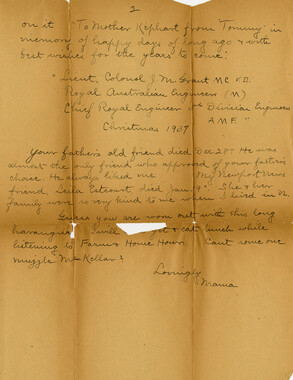 2
on it "To Mother Kephart from "Tommy" in
memory of happy days of long ago & with
best wishes for the years to come."
"Lieut. Colonel J M Grant MC V.D.
Royal Australian Engineer (M)
Chief Royal Engineer 4th Division Engineers
A.M.F."
Christmas 1937
Your father's old friend died Dec 28th He was
almost the only friend who approved of your father's
choice. He always liked me My Newport News
friend, Lella died Jan. She & her
family were so very kind to me when I lived in N.
Guess you are worn out with this long
harangue I will get & eat lunch while
listening to Farm & Home Hour. Cant some one
muzzle McKellar?
Lovingly
Mama